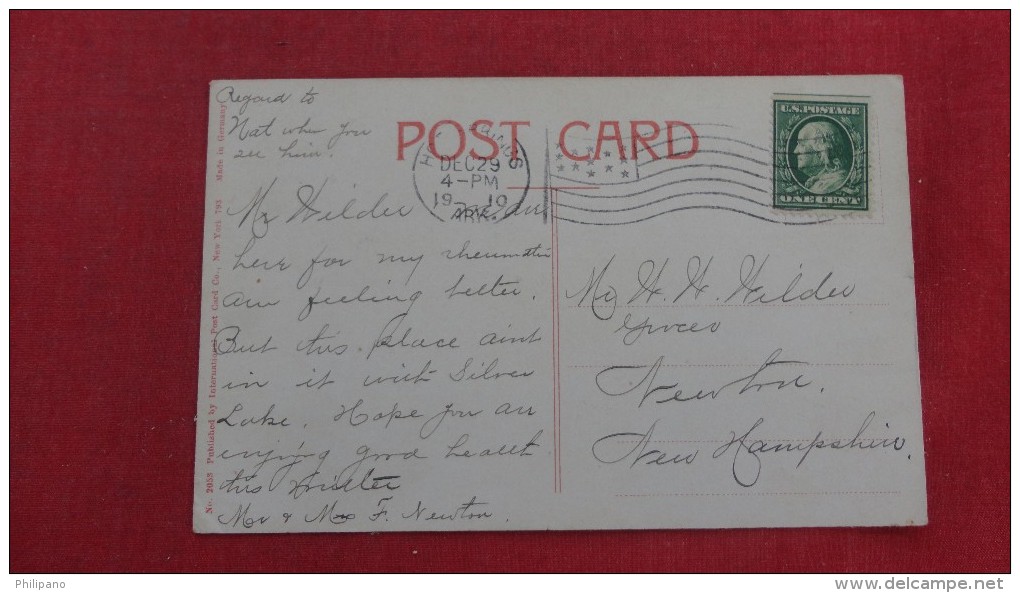 Regard to
Nat when you
see him.
POST CARD
DEC 29
4-PM
1910
ARK.
U.S. POSTAGE
ONE CENT
Mr Wilder
here for my rheumatism
am feeling better.
But this place aint
in it with Silver
Lake. Hope you are
enjoying good health
this winter
Mr & Mrs F. Newton.
Mr H. H. Wilder
Grocer
Newton.
New Hampshire.
No. 2053 Published by International Post Card Co., New York 795 Made in Germany
Philipano
www.delcampe.net